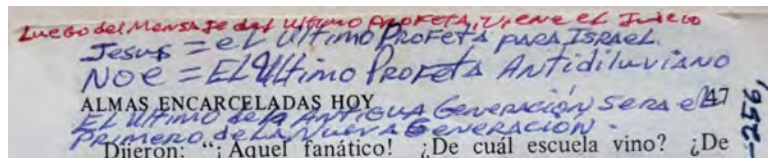 Luego del Mensaje del Ultimo Profeta, Viene el Juicio
Jesus = el Ultimo Profeta para Israel.
Noe = El Ultimo Profeta Antidiluviano
ALMAS ENCARCELADAS HOY 47
El Ultimo de la Antigua Generación Sera el
Primero de la Nueva Generación.
Dijeron: “¡Aquel fanático! ¿De cuál escuela vino? ¿De
-256,